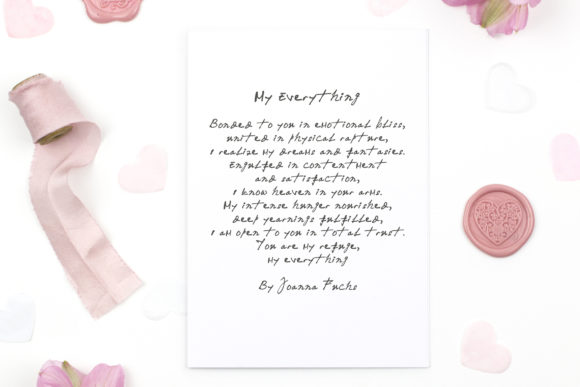 My Everything
Bonded to you in emotional bliss,
united in physical rapture,
I realize my dreams and fantasies.
Engulfed in contentment
and satisfaction,
I know heaven in your arms.
My intense hunger nourished,
deep yearnings fulfilled,
I am open to you in total trust.
You are my refuge,
my everything
By Joanna Fuchs